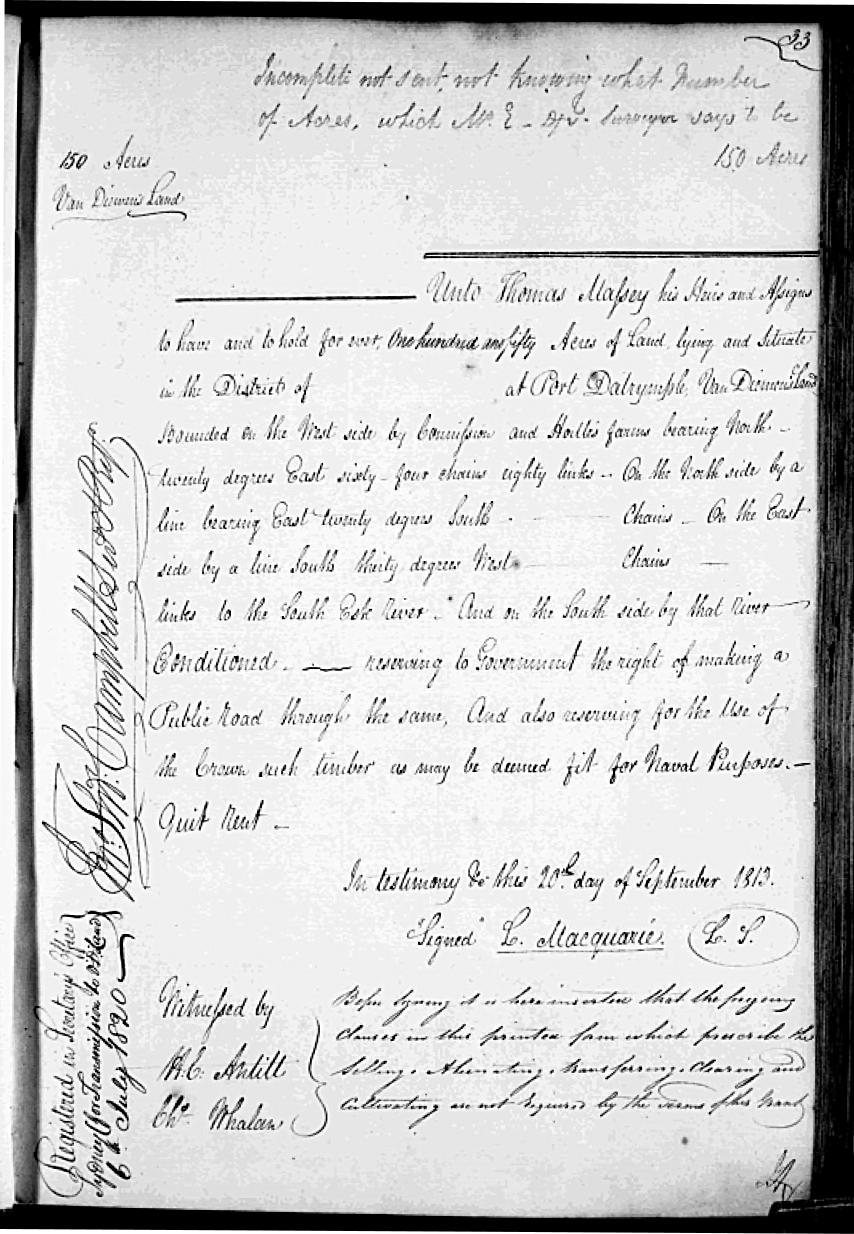 33
Incomplete not sent, not knowing what Number
of Acres, which Mr. E - Surveyor says to be
150 Acres
150 Acres
Van Diemen's Land
Unto Thomas Massey his Heirs and Assigns
to have and to hold for ever, One hundred and fifty Acres of Land, lying and Situate
in the District of at Port Dalrymple, Van Diemen's Land
Bounded on the West side by Connission and Hollis farms bearing North -
twenty degrees East sixty - four chains eighty links - On the North side by a
line bearing East twenty degrees South - Chains - On the East
side by a line South thirty degrees West - Chains -
links to the South Esk River - And on the South side by that River
Conditioned - reserving to Government the right of making a
Public Road through the same, And also reserving for the Use of
the Crown such timber as may be deemed fit for Naval Purposes. -
Quit Rent -
In testimony &c this 20th day of September 1813.
"Signed" L. Macquarie. L. S.
Witnessed by
H. C. Antill
Chs. Whalan
Before signing it is here inserted that the foregoing
Clauses in this printed form which prescribe the
Selling, Alienating, transferring, Clearing and
Cultivating are not required by the terms of this Grant
Campbell Secy & Regr.
Registered in Secretary's Office
Sydney (for Transmission to V. D. Land)
6th July 1820 -